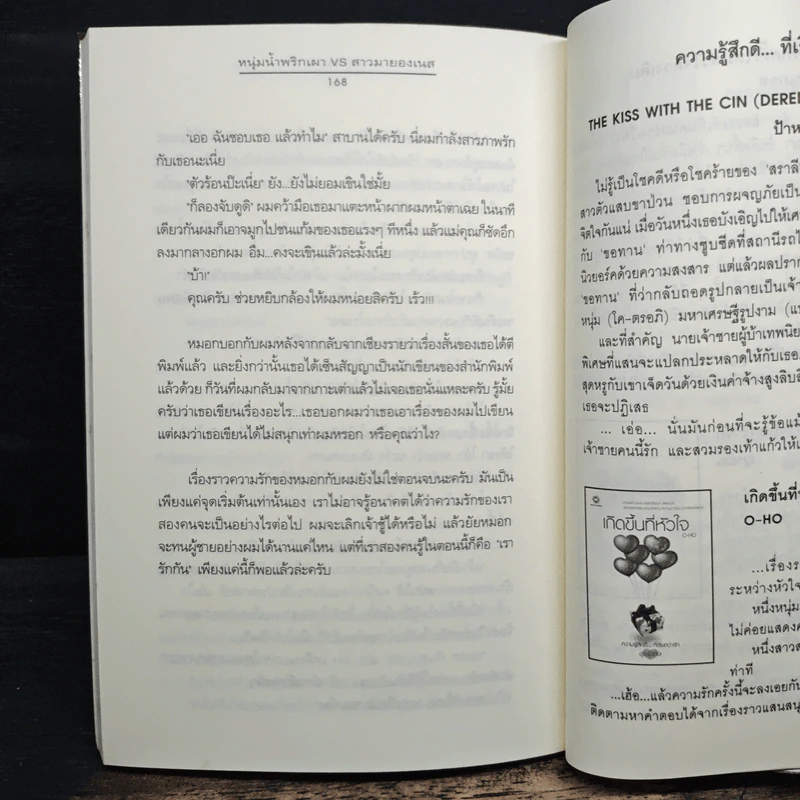 หนุ่มน้ำพริกเผา VS สาวมายองเนส
168
"เออ ฉันชอบเธอ แล้วทำไม" สาบานได้ครับ นี่ผมกำลังสารภาพรัก
กับเธอนะเนี่ย
"ตัวร้อนป๊ะเนี่ย" ยัง...ยังไม่ยอมเขินใช่มั้ย
"ก็ลองจับดูดิ" ผมคว้ามือเธอมาแตะหน้าผากผมหน้าตาเฉย ในนาที
เดียวกันผมก็เอาจมูกไปชนแก้มของเธอแรงๆ ทีหนึ่ง แล้วแม่คุณก็ซัดอั๊ก
ลงมากลางอกผม อืม...คงจะเขินแล้วล่ะมั้งเนี่ย
"บ้า!"
คุณครับ ช่วยหยิบกล้องให้ผมหน่อยสิครับ เร็ว!!!
หมอกบอกกับผมหลังจากกลับจากเชียงรายว่าเรื่องสั้นของเธอได้ตี
พิมพ์แล้ว และยิ่งกว่านั้นเธอได้เซ็นสัญญาเป็นนักเขียนของสำนักพิมพ์
แล้วด้วย ก็วันที่ผมกลับมาจากเกาะเต่าแล้วไม่เจอเธอนั่นแหละครับ รู้มั้ย
ครับว่าเธอเขียนเรื่องอะไร...เธอบอกผมว่าเธอเอาเรื่องของผมไปเขียน
แต่ผมว่าเธอเขียนได้ไม่สนุกเท่าผมหรอก หรือคุณว่าไง?
เรื่องราวความรักของหมอกกับผมยังไม่ใช่ตอนจบนะครับ มันเป็น
เพียงแค่จุดเริ่มต้นเท่านั้นเอง เราไม่อาจรู้อนาคตได้ว่าความรักของเรา
สองคนจะเป็นอย่างไรต่อไป ผมจะเลิกเจ้าชู้ได้หรือไม่ แล้วยัยหมอก
จะทนผู้ชายอย่างผมได้นานแค่ไหน แต่ที่เราสองคนรู้ในตอนนี้ก็คือ "เรา
รักกัน" เพียงแค่นี้ก็พอแล้วล่ะครับ
ความรู้สึกดี... ที่เ
THE KISS WITH THE CIN (DERE
ป้าห
ไม่รู้เป็นโชคดีหรือโชคร้ายของ 'สราลี
สาวตัวแสบขาป่วน ชอบการผจญภัยเป็น
จิตใจกันแน่ เมื่อวันหนึ่งเธอบังเอิญไปให้เศ
กับ 'ขอทาน' ท่าทางซูบซีดที่สถานีรถไ
นิวยอร์คด้วยความสงสาร แต่แล้วผลปราก
'ขอทาน' ที่ว่ากลับถอดรูปกลายเป็นเจ้า
หนุ่ม (โค-ตรอภิ) มหาเศรษฐีรูปงาม (แ
และที่สำคัญ นายเจ้าชายผู้บ้าเทพนิย
พิเศษที่แสนจะแปลกประหลาดให้กับเธอ
สุดหรูกับเขาเจ็ดวันด้วยเงินค่าจ้างสูงลิบลิ
เธอจะปฏิเสธ
... เอ่อ... นั่นมันก่อนที่จะรู้ข้อแม้
เจ้าชายคนนี้รัก และสวมรองเท้าแก้วให้เ
เกิดขึ้นที่หัวใจ
O-HO
เกิดขึ้นที่
O-HO
...เรื่องร
ระหว่างหัวใจ
หนึ่งหนุ่ม
ไม่ค่อยแสดง
หนึ่งสาว
ท่าที
...เฮ้อ...แล้วความรักครั้งนี้จะลงเอยกัน
ติดตามหาคำตอบได้จากเรื่องราวแสนสนุ